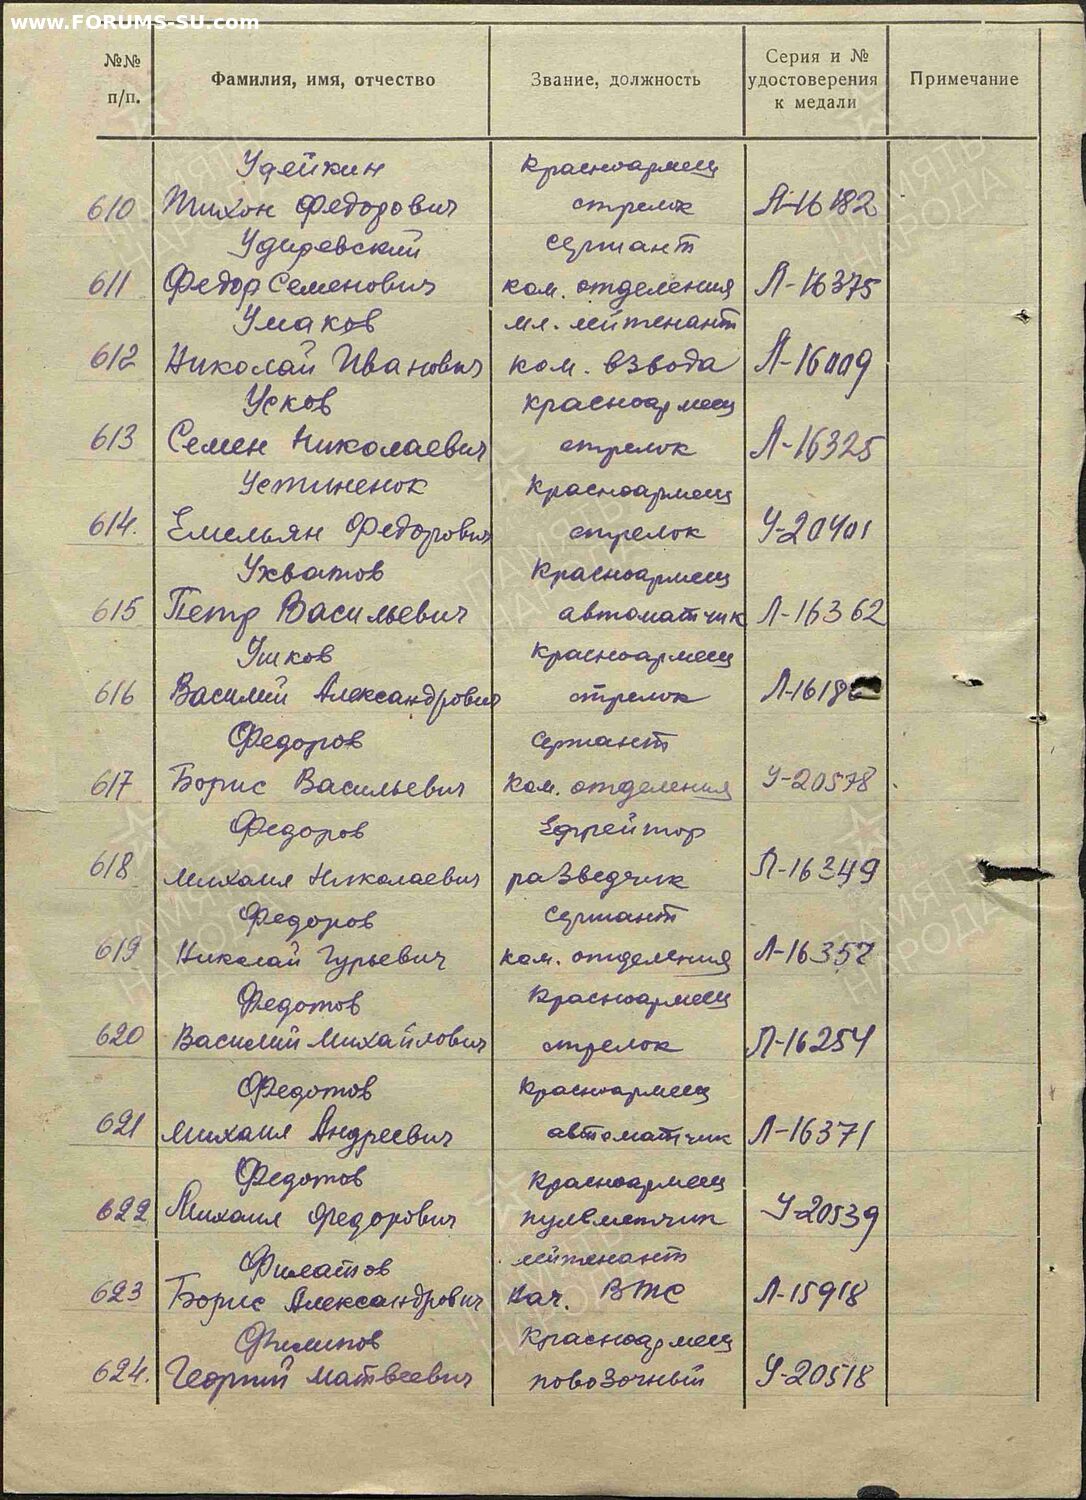 www.FORUMS-SU.com
№№ п/п. Фамилия, имя, отчество Звание, должность Серия и № удостоверения к медали Примечание
Удейкин Красноармеец
610 Тихон Федорович стрелок Л-16182
сержант
611 Федор Семенович ком. отделения Л-16375
Умаков мл. лейтенант
612 Николай Иванович ком. взвода Л-16009
Усков красноармеец
613 Семен Николаевич стрелок Л-16325
Устиненок Красноармеец
614. Емельян Федорович стрелок У-20401
Ухватов Красноармеец
615 Петр Васильевич автоматчик Л-16362
Ушков Красноармеец
616 Василий Александрович стрелок
Федоров Сержант
617 Борис Васильевич ком. отделения У-20578
Федоров Ефрейтор
618 Михаил Николаевич разведчик Л-16349
Федоров Сержант
619 Николай Гурьевич ком. отделения Л-16357
Федотов Красноармеец
620 Василий Михайлович стрелок Л-16254
Федотов Красноармеец
621 Михаил Андреевич автоматчик Л-16371
Федотов Красноармеец
622 Михаил Федорович пулеметчик У-20539
Филатов лейтенант
623 Борис Александрович Нач. ВТС Л-15918
Филипов Красноармеец
624. Георгий Матвеевич повозочный У-20518